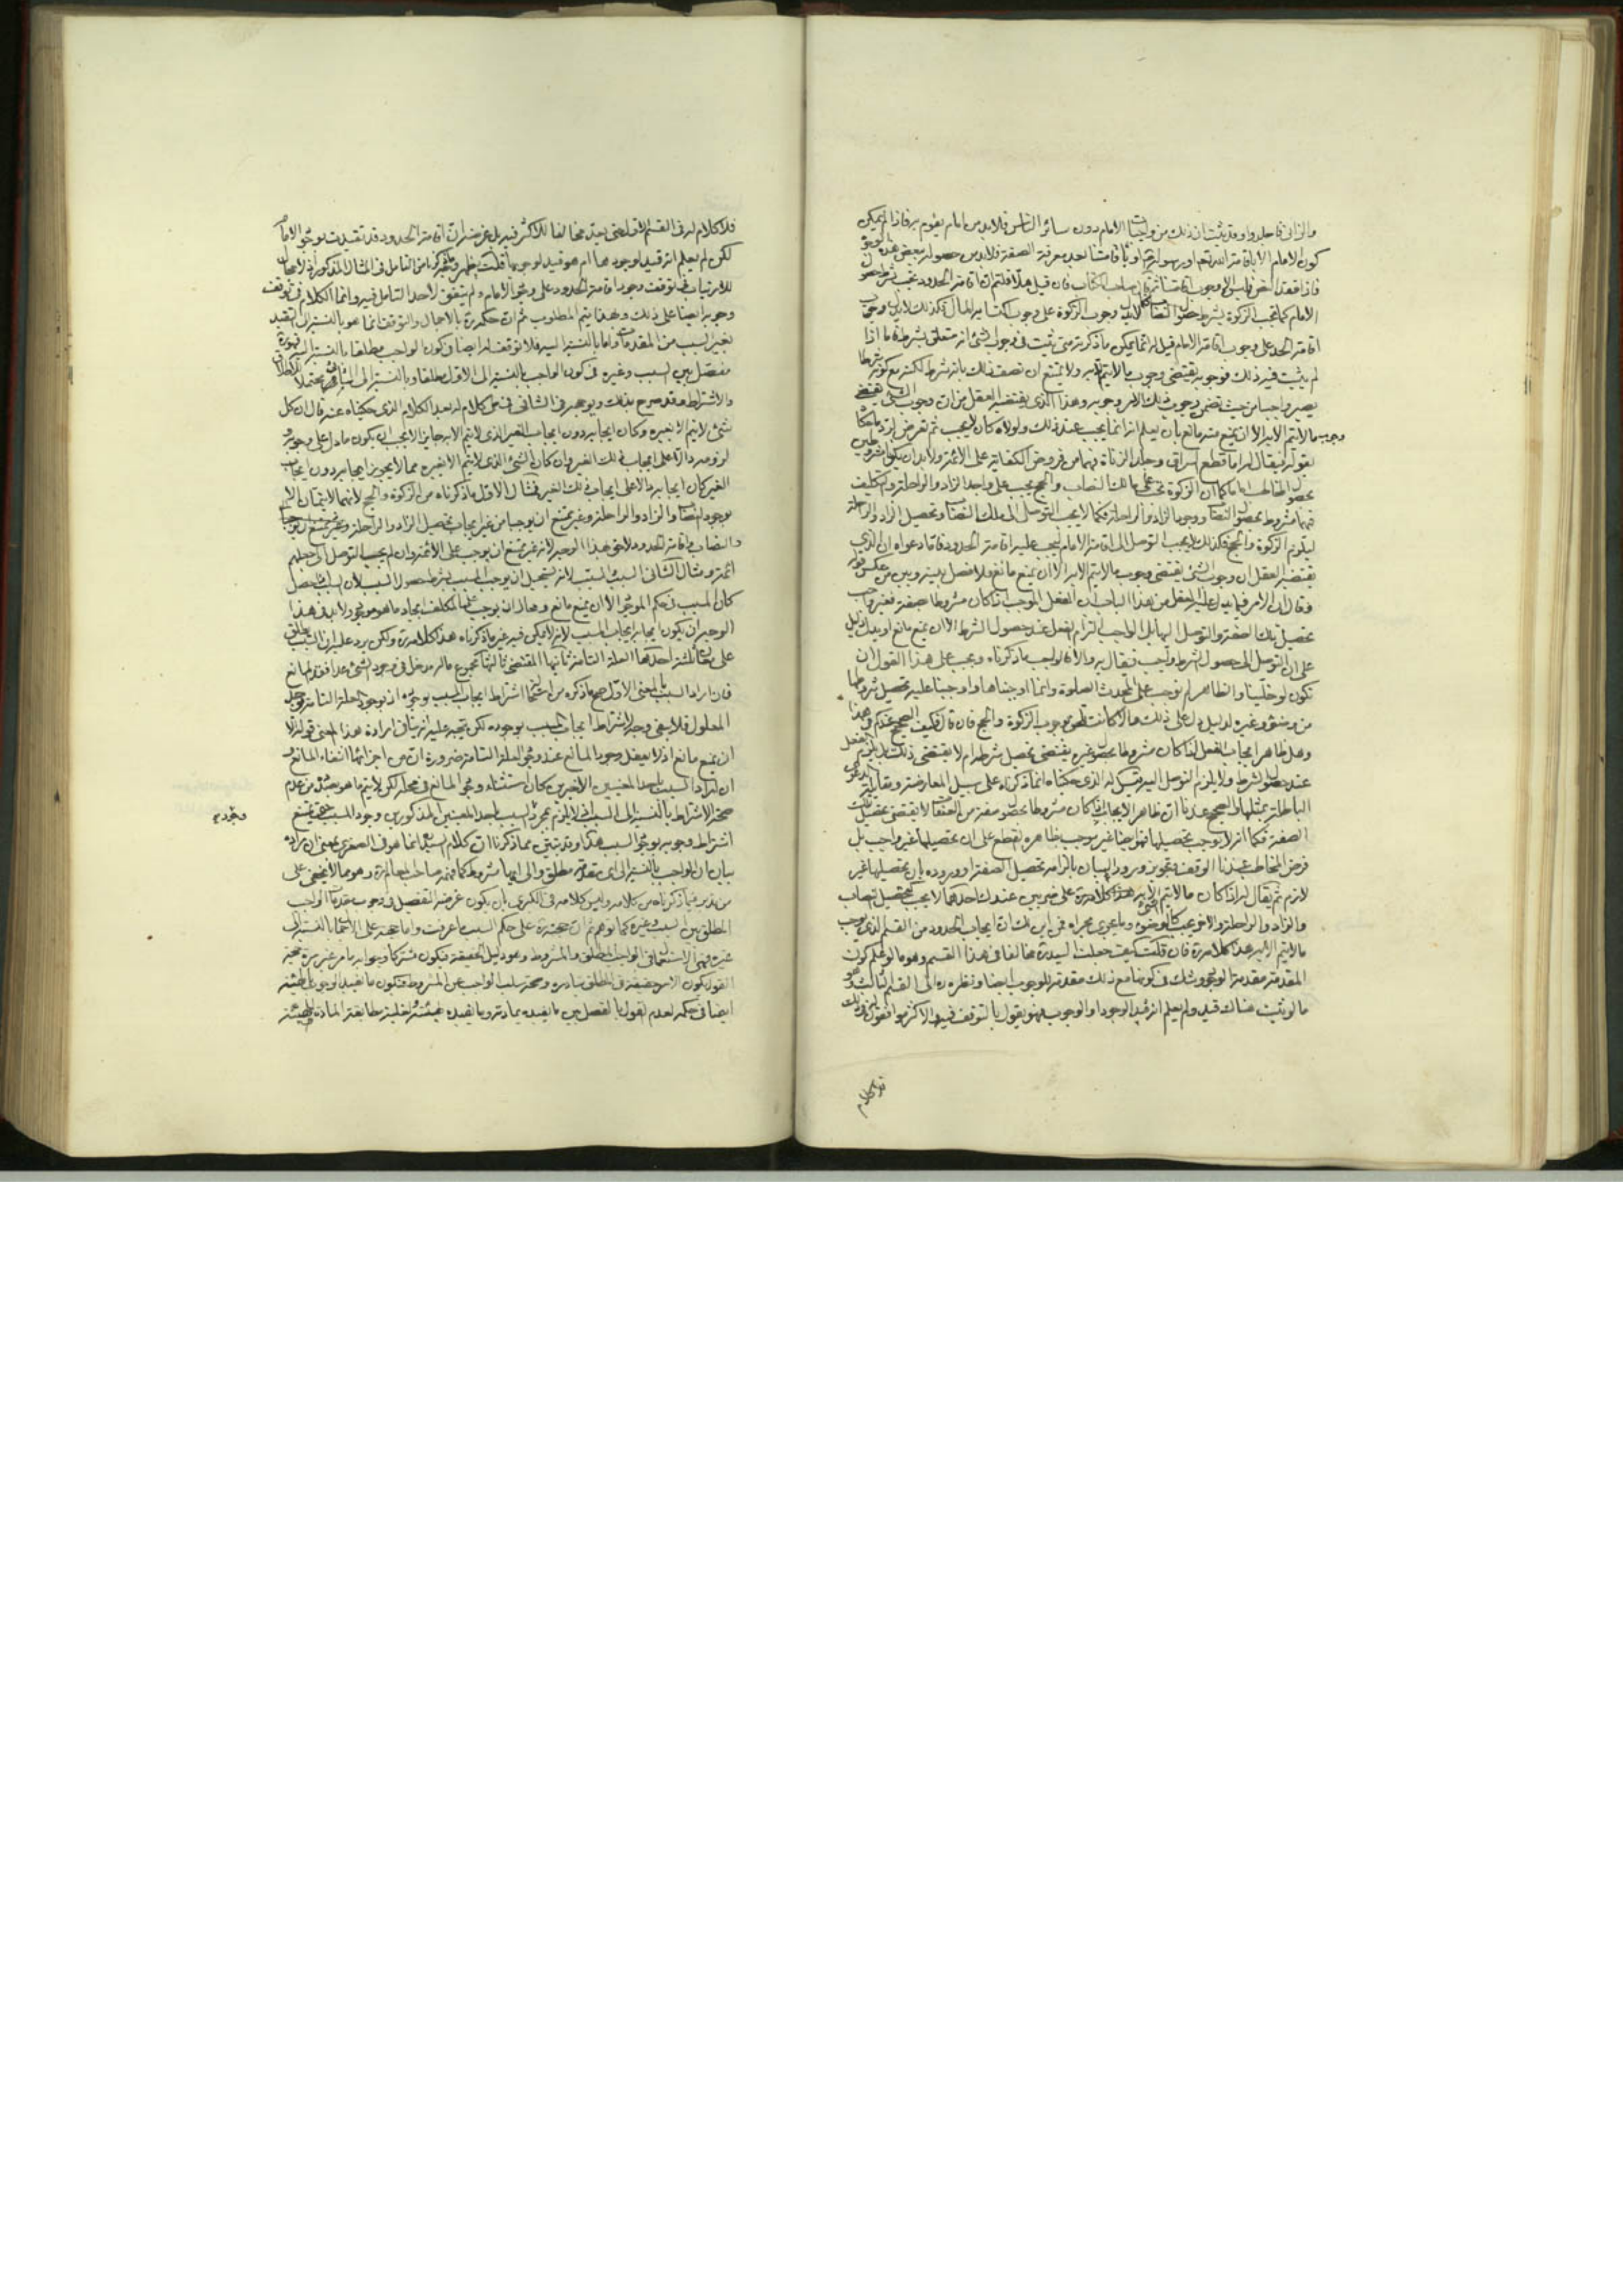 والزاني فاجلدوا وقد ثبت ان ذلك من الامام دون سائر الناس فلا بد من امام يقوم به فاذا لم يكن
كون الامام الا باقامة الله تعالى او رسوله او باقامتنا بعد معرفة الصفة فلا بد من حصول بعض هذه
فاذا فقد النص وجوب اقامتنا ثم قال صاحب الكتاب فان قيل هلا قلتم ان اقامة الحدود تجب بشرط حصول
الامام كما تجب الزكوة بشرط حصول النصاب فكما لا يدل وجوب الزكوة على وجوب اكتساب المال فكذلك لا يدل وجوب
اقامة الحد على وجوب اقامة الامام قيل له انما يمكن ما ذكرته متى ثبت في وجوب الشئ انه متعلق بشرط فاما اذا
لم يثبت فيه ذلك فوجوبه يقتضي وجوب ما لا يتم الا به ولا يمتنع ان نصف ذلك بانه شرط لكنه مع كونه شرطا
يصير واجبا من حيث تضمن وجوب ذلك الامر وجوبه وهذا الذي يقتضيه العقل من ان وجوب الشئ يقتضي
وجوب ما لا يتم الا به الا ان يمنع منه مانع بان يعلم انه انما يجب عند ذلك ولولاه كان لا يجب ثم تعرض لرد ما حكاه
بقوله فيقال له اما قطع السراق وجلد الزناة فهما من فروض الكفاية على الائمة ولا بد ان يكونا مشروطين
بحصول اماما كما ان الزكوة تجب على مالك النصاب والحج يجب على واجد الزاد والراحلة والتكليف
فيهما مشروط بحصول النصاب ووجود الزاد والراحلة فكما لا يجب التوصل الى ملك النصاب وتحصيل الزاد والراحلة
ليلزم الزكوة والحج فكذلك لا يجب التوصل الى اقامة الامام ليجب عليه اقامة الحدود فاما دعواه ان الذي
يقتضيه العقل ان وجوب الشئ يقتضي وجوب ما لا يتم الا به الا ان يمنع مانع فلا فصل بينه وبين من عكس قوله
وقال ان الامر فيما يدل عليه العقل من هذا الباب ان الفعل الموجب اذا كان مشروطا بصفة فغير واجب
تحصيل تلك الصفة والتوصل اليها بل الواجب التزام الفعل عند حصول الشرط الا ان يمنع مانع او يدل دليل
على ان التوصل الى حصول الشرط واجب فيقال به والا فالواجب ما ذكرناه ويجب على هذا القول ان
نكون لو خلينا والظاهر لم نوجب على المحدث الصلوة وانما اوجبناها واوجبنا عليه تحصيل شروطها
من وضوء وغيره لدليل دل على ذلك
وهل ظاهر ايجاب الفعل اذا كان مشروطا بصفة وغيره يقتضي تحصيل شرطه ام لا يقتضي ذلك بل يلزم الفعل
عند حصول الشرط ولا يلزم التوصل اليه قيل له الذي حكيناه انما ذكرناه على سبيل المعارضة ومقابلة الدعوى
الباطلة بمثلها والصحيح عندنا ان ظاهر الايجاب اذا كان مشروطا بحصول صفة من الصفات لا يقتضي تحصيل تلك
الصفة فكما انه لا يوجب تحصيلها فهو ايضا غير موجب بظاهره القطع على ان تحصيلها غير واجب بل
فرض المخاطب عندنا الوقف وتجويز ورود البيان بالزامه تحصيل الصفة او وروده بان تحصيلها غير
لازم ثم يقال له اذا كان ما لا يتم الشئ الا به على ضربين عندك احدهما لا يجب كتحصيل النصاب
والزاد والراحلة والاخر يجب كالوضوء وما يجري مجراه فمن اين لك ان ايجاب الحدود من القسم الذي يوجب
ما لا يتم الا به هذا كلامه ره فان قلت كيف جعلت السيد ره مخالفا في هذا القسم وهو ما لو علم كون
المقدمة مقدمة الوجود وشك في كونها مع ذلك مقدمة للوجوب ايضا ونظره ره الى القسم الثالث وهو
ما لو ثبت هناك قيد ولم يعلم انه قيد الوجود او الوجوب فهو يقول بالتوقف فيه والاكثر موافقون له في ذلك
فلا كلام له في القسم الاول حتى يعد مخالفا للاكثر فيه بل غرضه ان اقامة الحدود قد تقيدت بوجود الامام
لكن لم يعلم انه قيد لوجودها ام هو قيد لوجوبها قلت يظهر من التامل في المثال المذكور اذ لا مجال
للارتياب في توقف وجود اقامة الحدود على وجود الامام ولم يتفق لاحد التامل فيه وانما الكلام في توقف
وجوبها ايضا على ذلك وبهذا يتم المطلوب ثم ان حكمه ره بالاجمال والتوقف انما هو بالنسبة الى التقييد
بغير السبب من المقدمات واما بالنسبة اليه فلا توقف له ايضا في كون الواجب مطلقا بالنسبة اليه فهو ره
مفصل بين السبب وغيره في كون الواجب بالنسبة الى الاول مطلقا وبالنسبة الى الثاني محتملا للاطلاق
والاشتراط وقد صرح بذلك وبوجهه في الشافي في ضمن كلام له بعد الكلام الذي حكيناه عنه قال ان كل
شئ لا يتم الا بغيره وكان ايجابه دون ايجاب الغير الذي لا يتم الا به جايزا لا يجب ان يكون ما دل على وجوبه و
لزومه دالا على ايجاب ذلك الغير وان كان الشئ الذي لا يتم الا بغيره مما لا يجوز ايجابه دون ايجاب
الغير كان ايجابه دالا على ايجاب ذلك الغير فمثال الاول ما ذكرناه من الزكوة والحج لانهما لا يتمان الا
بوجود النصاب والزاد والراحلة وغير ممتنع ان يوجبا من غير ايجاب تحصيل الزاد والراحلة
والنصاب واقامة الحدود لاحق بهذا الوجه لانه غير ممتنع ان يوجب على الائمة وان لم يجب التوصل الى جعلهم
ائمة ومثال الثاني السبب والمسبب لانه يستحيل ان يوجب المسبب بشرط حصول السبب لان السبب اذا حصل
كان المسبب في حكم الموجود الا ان يمنع مانع ومحال ان يوجب على المكلف ايجاد ما هو موجود ولا بد في هذا
الوجه ان يكون ايجابه ايجاب السبب لانه لا يمكن فيه غير ما ذكرناه هذا كلامه ره ولكن يرد عليه ان السبب يطلق
على معان ثلثة احدها العلة التامة ثانيها المقتضي ثالثها مجموع ما له مدخل في وجود الشئ عدا فقد المانع
فان اراد السبب بالمعنى الاول صح ما ذكره من امتناع اشتراط ايجاب المسبب بوجوده اذ بوجود العلة التامة يوجد
المعلول فلا يبقى وجه لاشتراط ايجاب المسبب بوجوده لكن يتجه عليه انه ينافي ارادة هذا المعنى قوله الا
ان يمنع مانع اذ لا يعقل وجود المانع عند وجود العلة التامة ضرورة ان من اجزائها انتفاء المانع و
ان اراد السبب باحد المعنيين الاخيرين كان استثناء وجود المانع في محله لكن لا يتم ما هو بصدده من عدم
صحة الاشتراط بالنسبة الى السبب اذ لا يلزم بمجرد السبب باحد المعنيين المذكورين وجود المسبب حتى يمتنع
اشتراط وجوبه بوجود السبب هذا وقد تبين بما ذكرنا ان كلام السيد ره انما هو في الصغرى بمعنى ان مراده
بيان ان الواجب بالنسبة الى اي مقدمة مطلق والى ايها مشروط كما فهمه صاحب المعالم ره وهو مما لا يخفى على
من تدبر فيما ذكرناه من كلامه وليس كلامه في الكبرى بان يكون غرضه التفصيل في وجوب مقدمة الواجب
المطلق بين السبب وغيره كما توهم ثم ان حجته ره على حكم السبب ما عرفت واما حجته على الاحتمال بالنسبة الى
غيره فهي الاستعمال في الواجب المطلق والمشروط وهو دليل الحقيقة فيكون مشتركا
القول بكون الامر حقيقة في المطلق تبادره وصحة سلب الواجب عن المشروط فيكون ما يفيد الوجوب بالهيئة
ايضا في حكمه لعدم القول بالفصل بين ما يفيده بمادته وما يفيده بهيئته